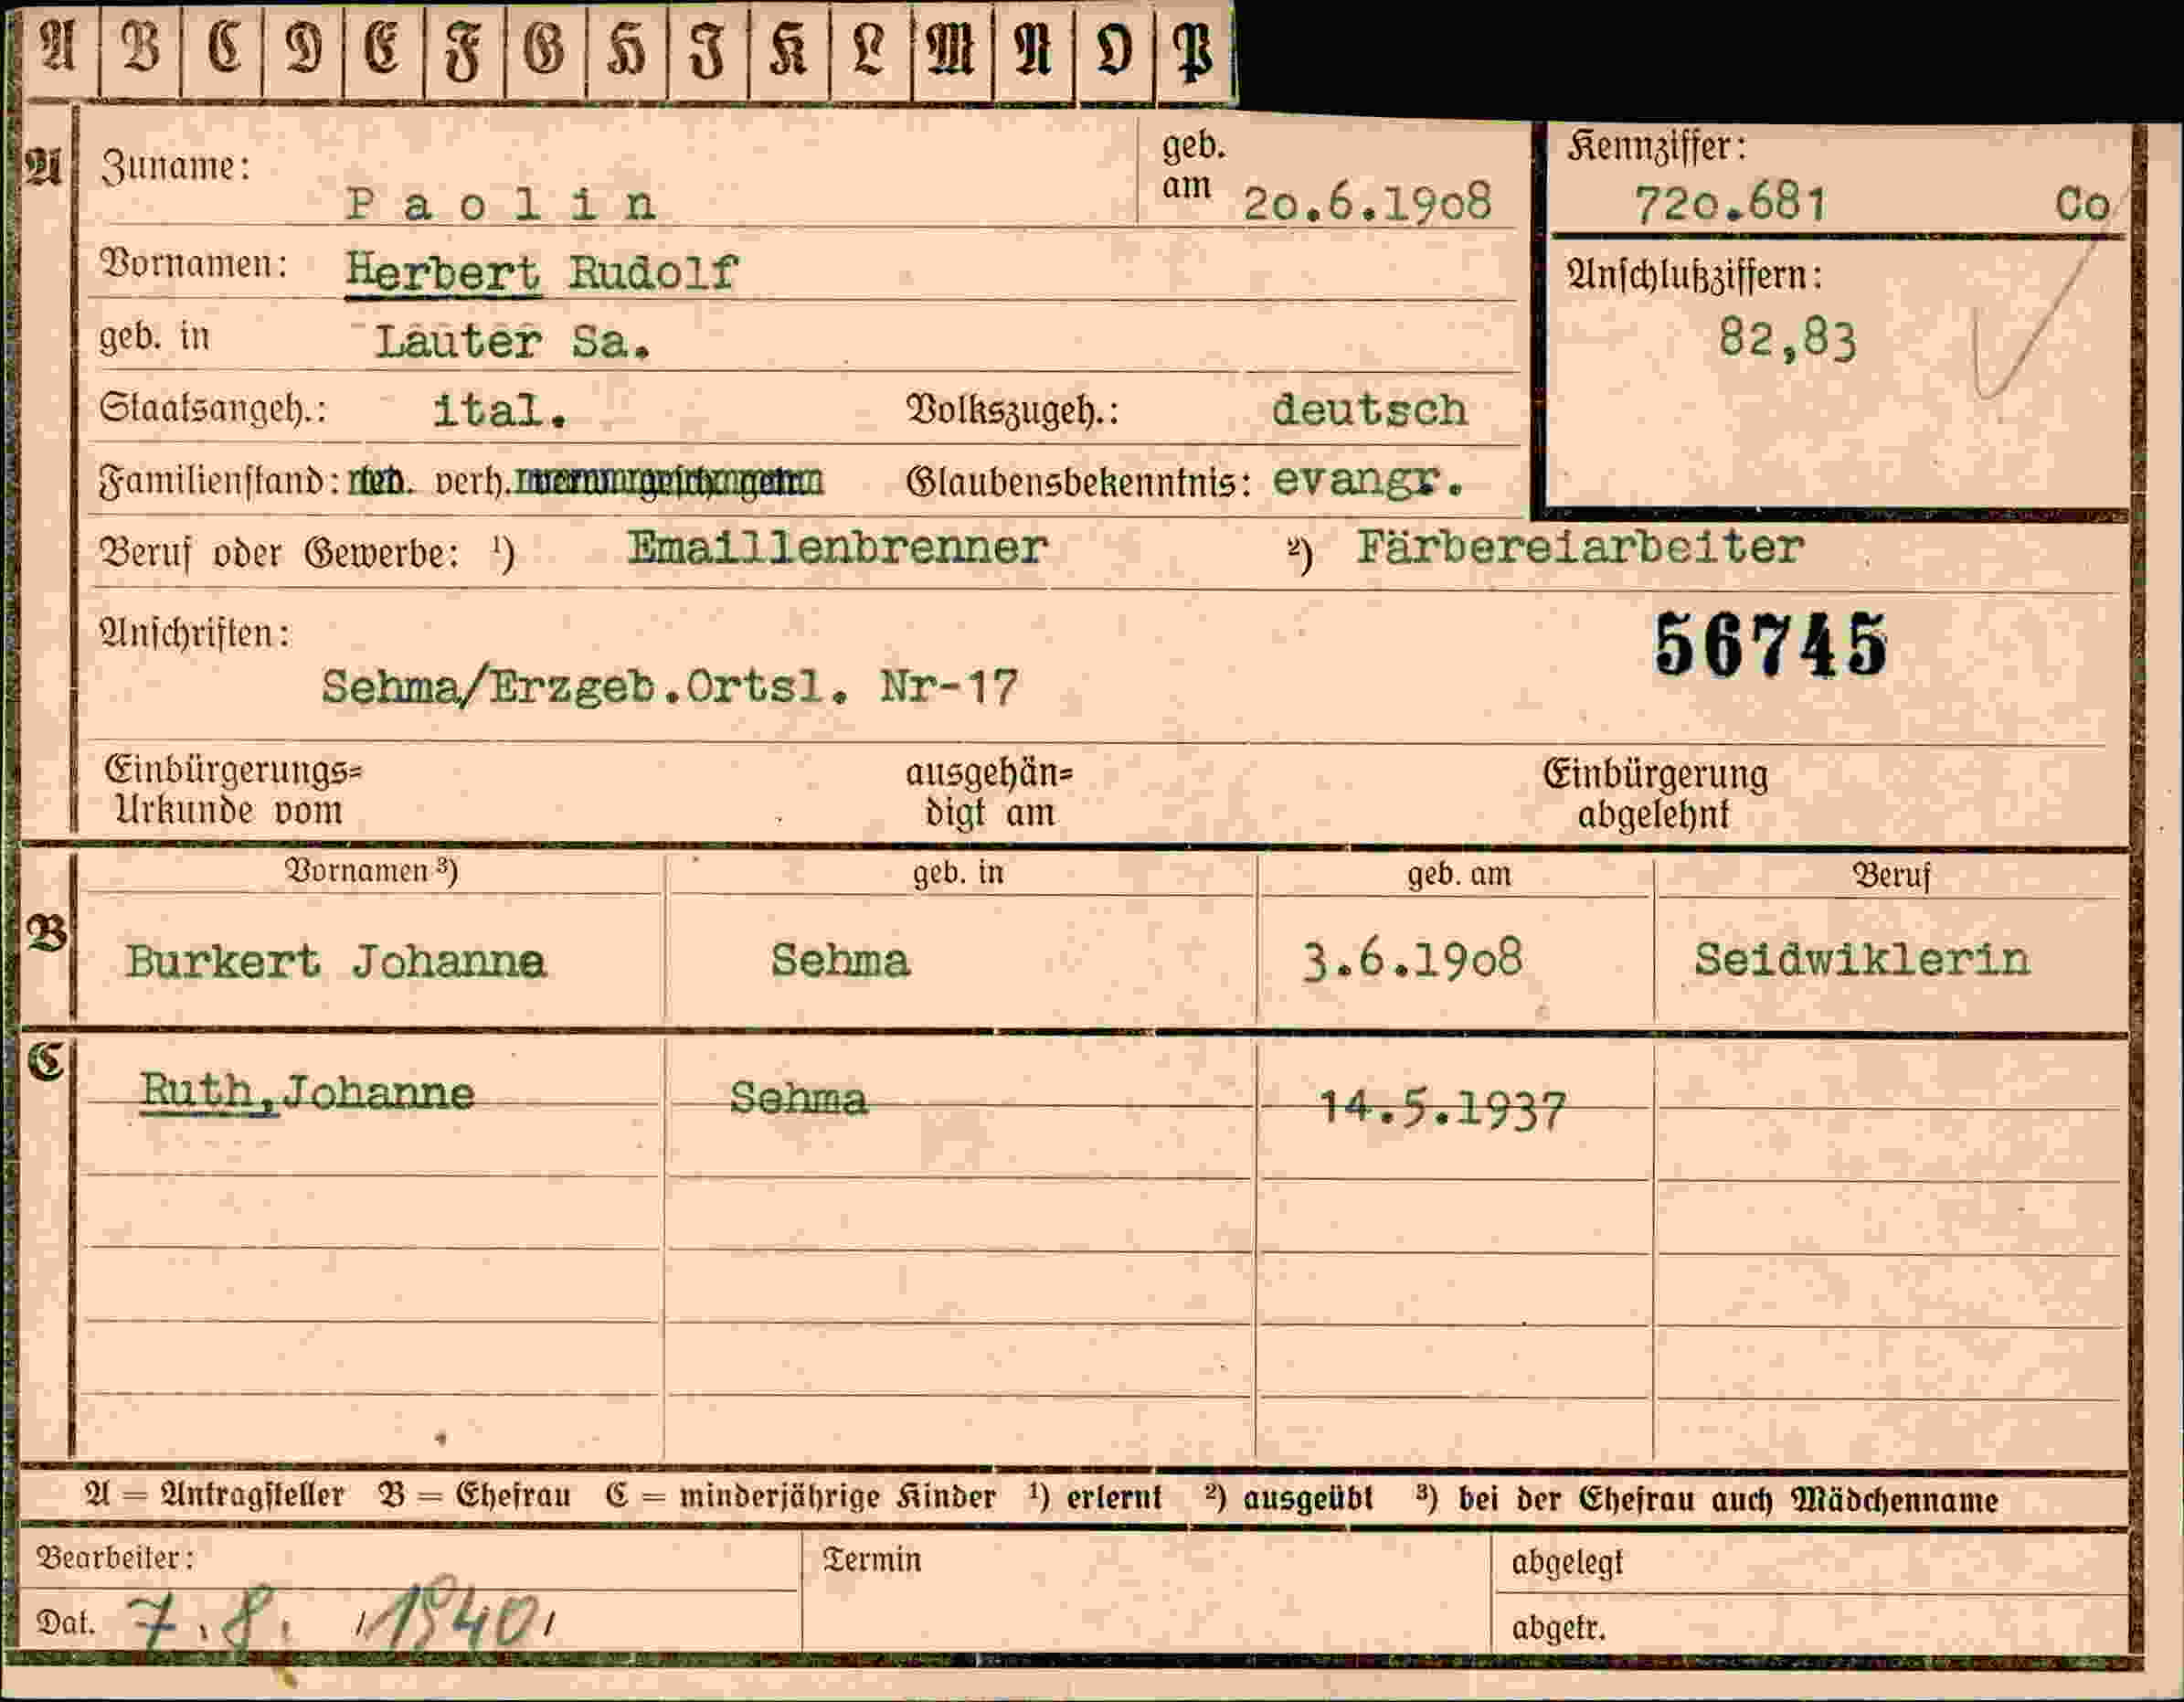 A B C D E F G H J K L M N O P
A Zuname: Paolin geb. am 20.6.1908 Kennziffer: 720.681 Co
Vornamen: Herbert Rudolf Anschlußziffern:
geb. in Lauter Sa. 82,83
Staatsangeh.: ital. Volkszugeh.: deutsch
Familienstand: verh. Glaubensbekenntnis: evangr.
Beruf oder Gewerbe: ¹) Emaillenbrenner ²) Färbereiarbeiter
Anschriften: 56745
Sehma/Erzgeb.Ortsl. Nr-17
Einbürgerungs= ausgehän= Einbürgerung
Urkunde vom digt am abgelehnt
Vornamen ³) geb. in geb. am Beruf
B Burkert Johanne Sehma 3.6.1908 Seidwiklerin
C Ruth,Johanne Sehma 14.5.1937
A = Antragsteller B = Ehefrau C = minderjährige Kinder ¹) erlernt ²) ausgeübt ³) bei der Ehefrau auch Mädchenname
Bearbeiter: Termin abgelegt
Dat. 7.8. 1940 abgetr.